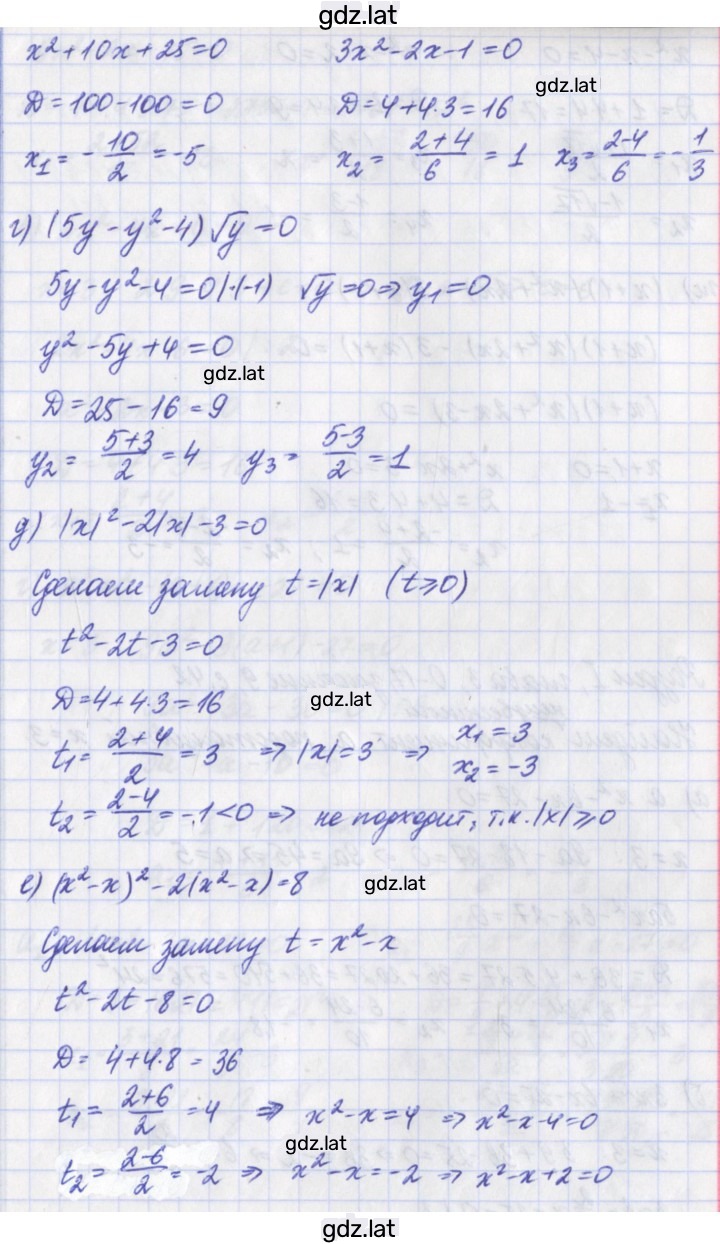 gdz.lat
x²+10x+25=0 3x²-2x-1=0
gdz.lat
D=100-100=0 D=4+4·3=16
x₁= -10/2 =-5 x₂= (2+4)/6 = 1 x₃= (2-4)/6 = -1/3
г) (5y-y²-4)√y=0
5y-y²-4=0|·(-1) √y=0⇒y₁=0
y²-5y+4=0
gdz.lat
D=25-16=9
y₂= (5+3)/2 =4 y₃= (5-3)/2 =1
д) |x|²-2|x|-3=0
Сделаем замену t=|x| (t⩾0)
t²-2t-3=0
D=4+4·3=16
gdz.lat
t₁= (2+4)/2 =3 ⇒|x|=3 ⇒ x₁=3
x₂=-3
t₂= (2-4)/2 =-1<0 ⇒ не подходит, т.к. |x|⩾0
е) (x²-x)²-2(x²-x)=8
gdz.lat
Сделаем замену t=x²-x
t²-2t-8=0
D= 4+4·8=36
t₁= (2+6)/2 =4 ⇒ x²-x=4 ⇒x²-x-4=0
gdz.lat
t₂= (2-6)/2 =-2 ⇒ x²-x=-2 ⇒x²-x+2=0
gdz.lat